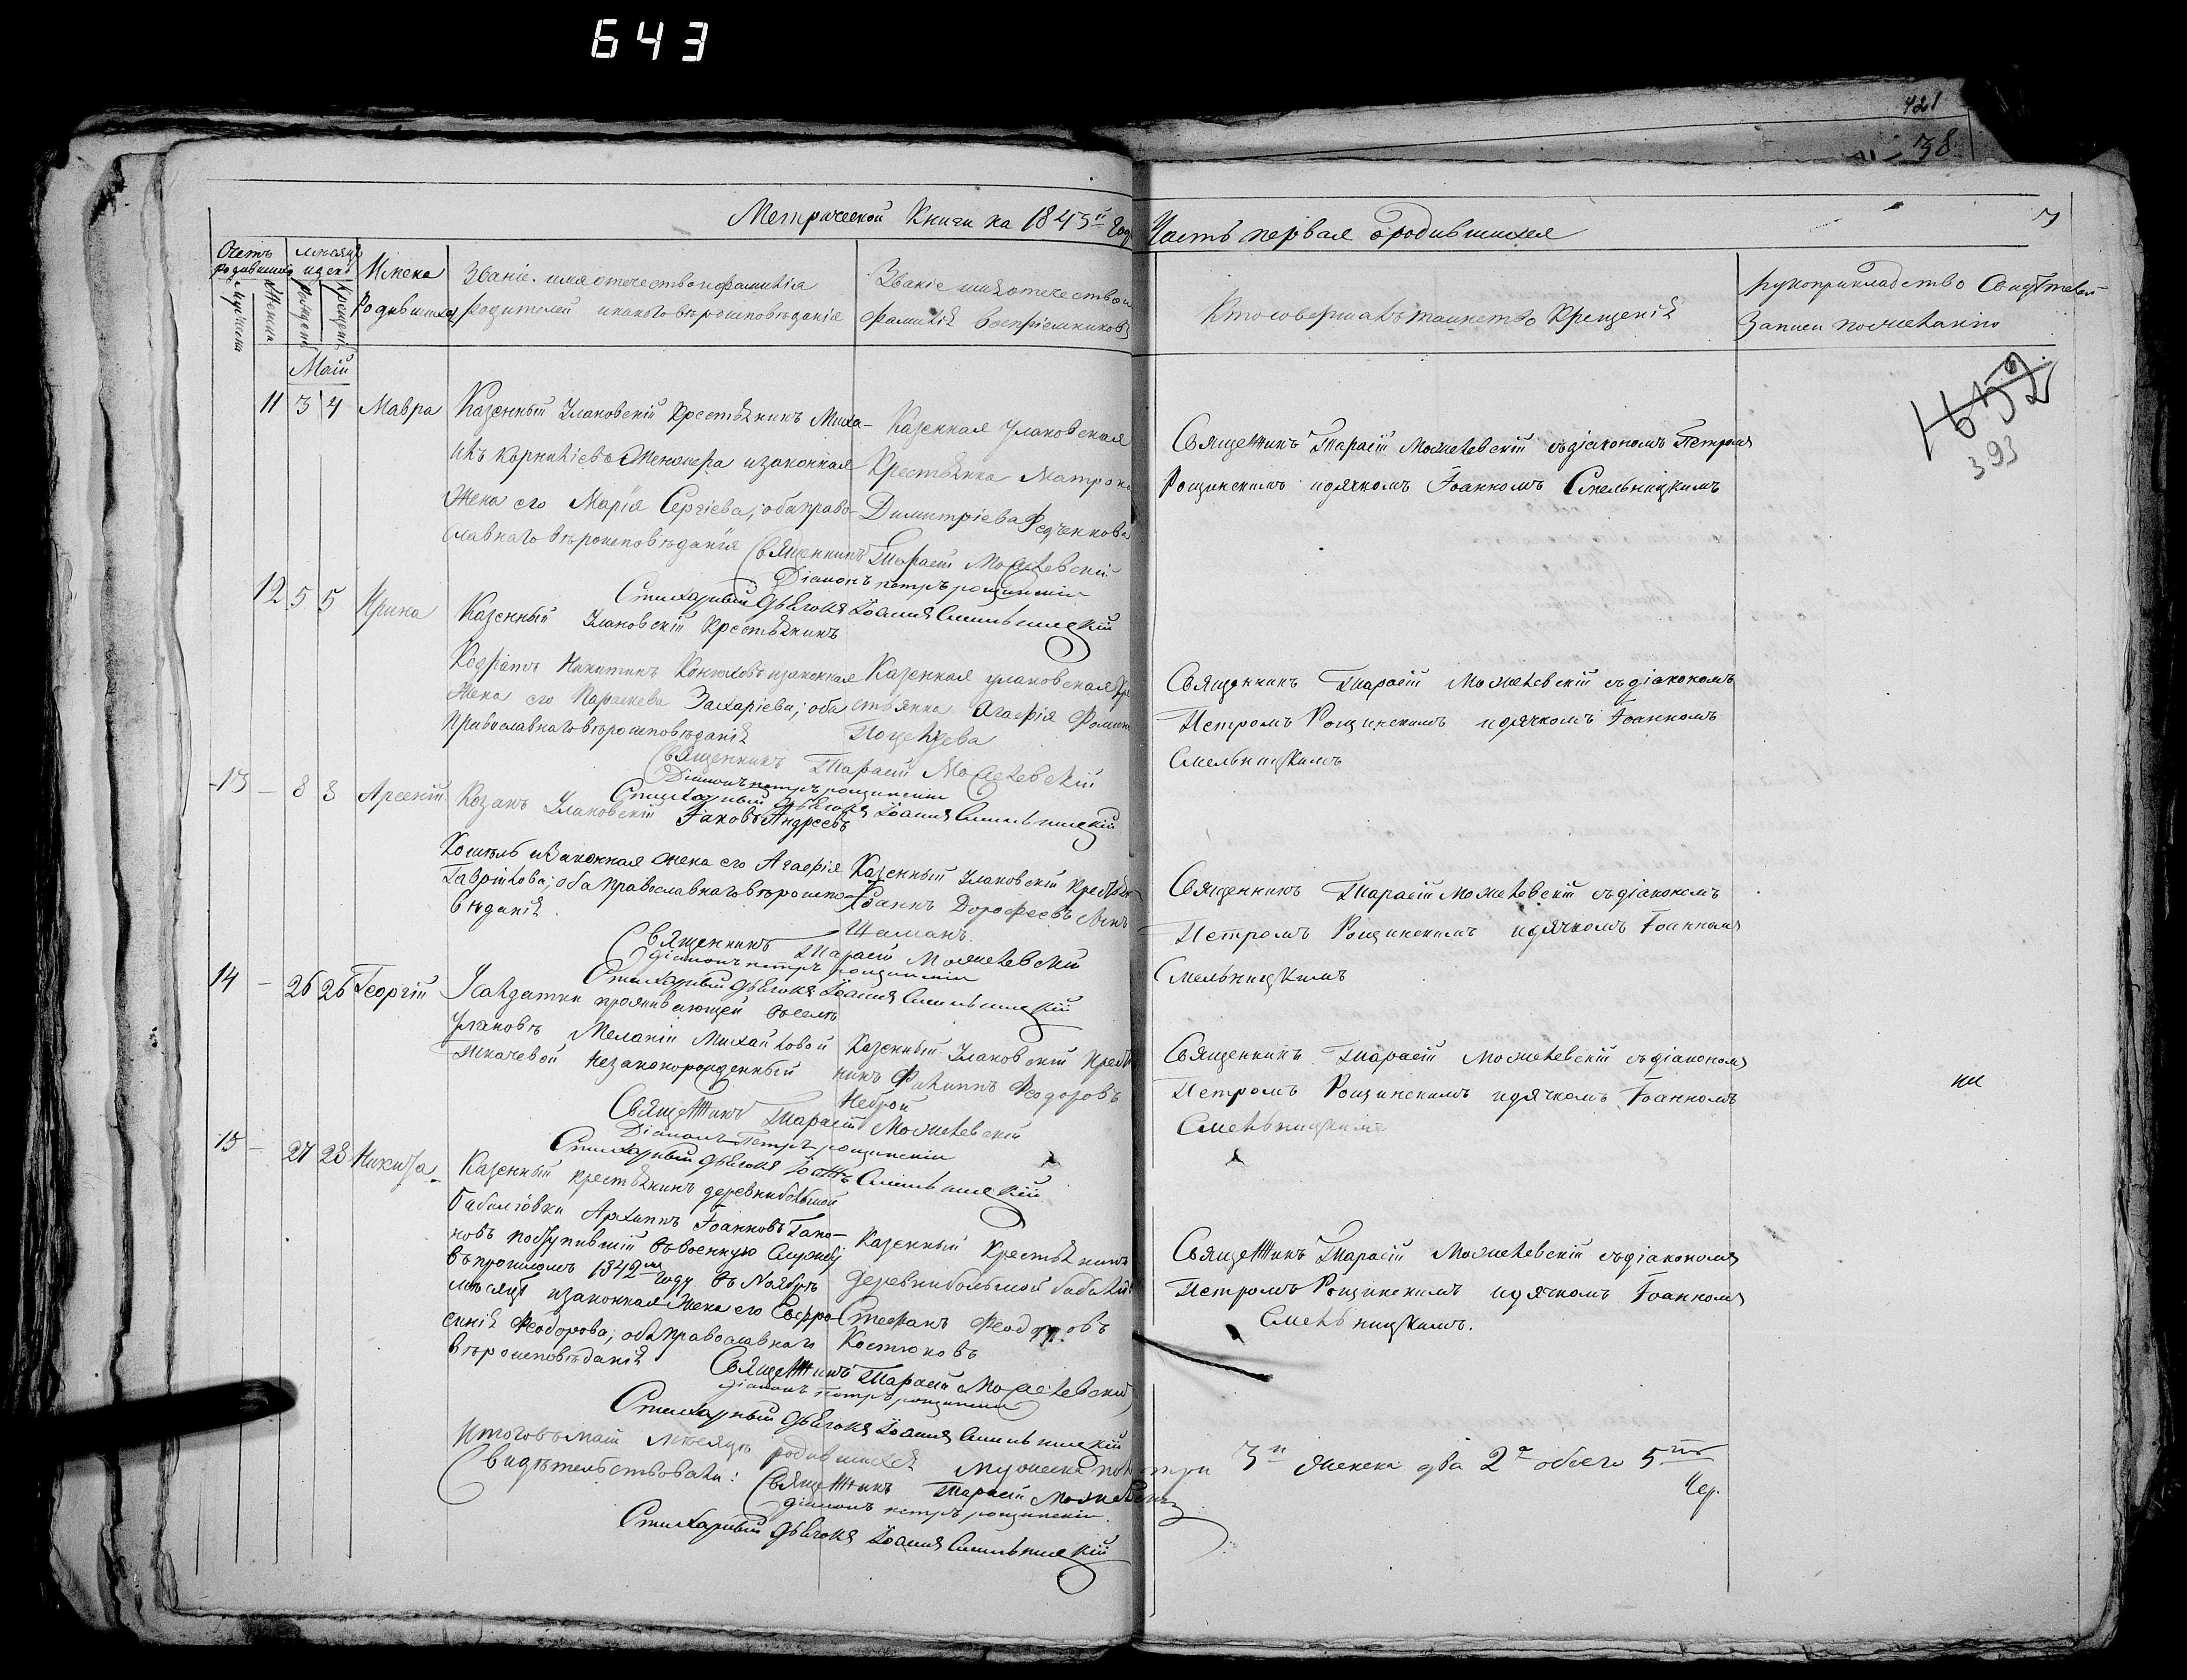 643
421
38
Метрической Книги на 1843й Годъ
Часть первая о родившихся
7
Счетъ родившихся
Мужеска
Женска
Месяцъ и день
Рожденія
Крещенія
Имена
Родившихся
Званіе. имя отечество и фамилія
родителей и какого вѣроисповѣданія
Званіе имя отечество и
фамилія воспріемниковъ
Кто совершалъ таинство Крещенія
Рукоприкладство Свидѣтелей
Записи по желанію
Маій
1652
393
11 3 4 Мавра
Казенный Улановскій Крестьянинъ Миха-
илъ Корниліевъ и законная
Жена его Марія Сергіева; оба право-
славнаго вѣроисповѣданія
Казенная Улановская
Крестьянка Матрона
Димитріева Федченкова
Священникъ Тарасій Можаевскій
Діаконъ Петръ Рощинскій
Стихарный Дьячокъ Іоаннъ Смельницкій
Священникъ Тарасій Можалевскій съ діакономъ Петромъ
Рощинскимъ и дячкомъ Іоанномъ Смельницкимъ
12 5 5 Ирина
Казенный Улановскій Крестьянинъ
Кодратъ Никитинъ и законная
Жена его Параскева Захаріева; оба
Православнаго вѣроисповѣданія
Казенная улановская Кре
стьянка Агафія Фомина
Священникъ Тарасій Можалевскій
Діаконъ Петръ Рощинскій
Стихарный Дьячокъ Іоаннъ Смельницкій
Священникъ Тарасій Можалевскій съ діакономъ
Петромъ Рощинскимъ и дячкомъ Іоанномъ
Смельницкимъ
13 — 8 8 Арсеній
Козакъ Улановскій Іаковъ Андреевъ
Кошель и законная жена его Агафія
Гаврилова; оба православнаго вѣроиспо-
вѣданія
Казенный Улановскій Крестьян
Іоаннъ Дорофеевъ сынъ
Шаманъ
Священникъ Тарасій Можалевскій
діаконъ петръ рощинскій
Стихарный Дьячокъ Іоаннъ Смельницкій
Священникъ Тарасій Можалевскій съ діакономъ
Петромъ Рощинскимъ и дячкомъ Іоанномъ
Смельницкимъ
14 — 26 26 Георгій
Солдатки проживающей въ селѣ
Улановѣ Меланіи Михайловой
Ткачевой незаконорожденный
Казенный Улановскій Крестья
нинъ Филиппъ Феодоровъ
Неброй
Священникъ Тарасій Можалевскій
Діаконъ Петръ рощинскій
Стихарный Дьячокъ Іоаннъ Смельницкій
Священникъ Тарасій Можалевскій съ діакономъ
Петромъ Рощинскимъ и дячкомъ Іоанномъ
Смельницкимъ
15 — 27 28 Никита
Казенный крестьянинъ деревни большой
Бабаловки Архиппъ Іоанновъ Гапо-
новъ поступившій въ военную Службу
въ прошломъ 1842мъ году въ Ноябрѣ
месяцѣ и законная Жена его Евфро-
синія Феодорова; оба православнаго
вѣроисповѣданія
Казенный Крестьянинъ
деревни большой
Стефанъ Феодоровъ
Костюковъ
Священникъ Тарасій Можалевскій
діаконъ петръ рощинскій
Стихарный Дьячокъ Іоаннъ Смельницкій
Священникъ Тарасій Можалевскій съ діакономъ
Петромъ Рощинскимъ и дячкомъ Іоанномъ
Смельницкимъ.
Итого въ маіи месяцѣ родившихся мужеска пола три 3и женска два 2а обоего 5ть
Чер.
Свидѣтельствовали: Священникъ Тарасій Можалевскій
діаконъ петръ рощинскій
Стихарный Дьячокъ Іоаннъ Смельницкій